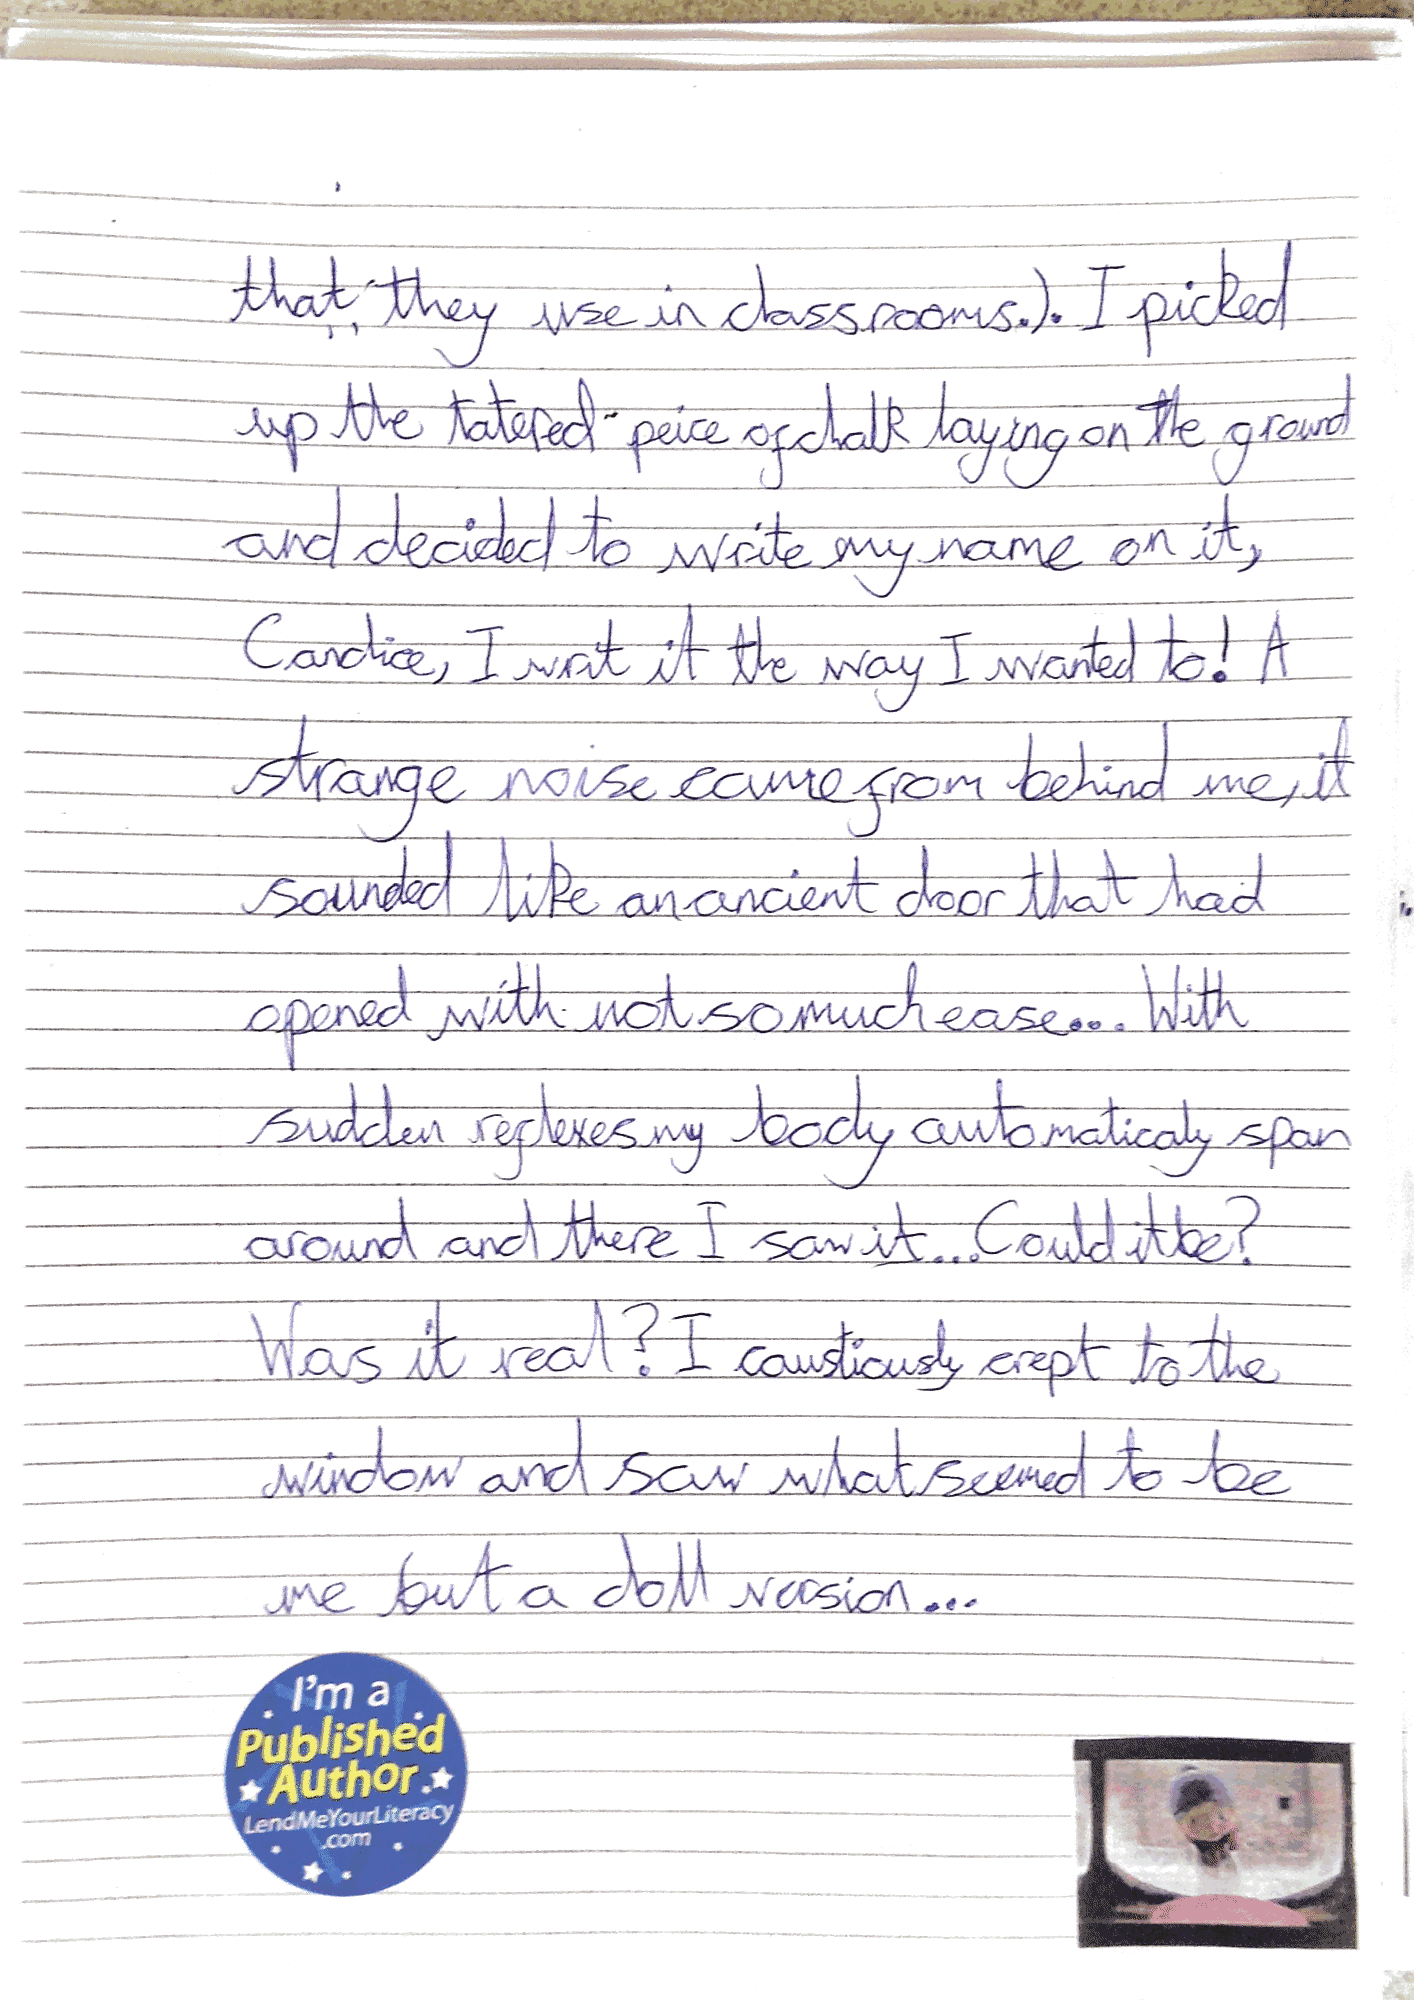 that they use in classrooms.). I picked
up the tatered peice of chalk laying on the ground
and decided to write my name on it,
Candice, I writ it the way I wanted to! A
strange noise came from behind me, it
sounded like an ancient door that had
opened with not so much ease... With
sudden reflexes my body automaticaly span
around and there I saw it... Could it be?
Was it real? I caustiously crept to the
window and saw what seemed to be
me but a doll version...
I'm a
Published
Author
LendMeYourLiteracy
.com